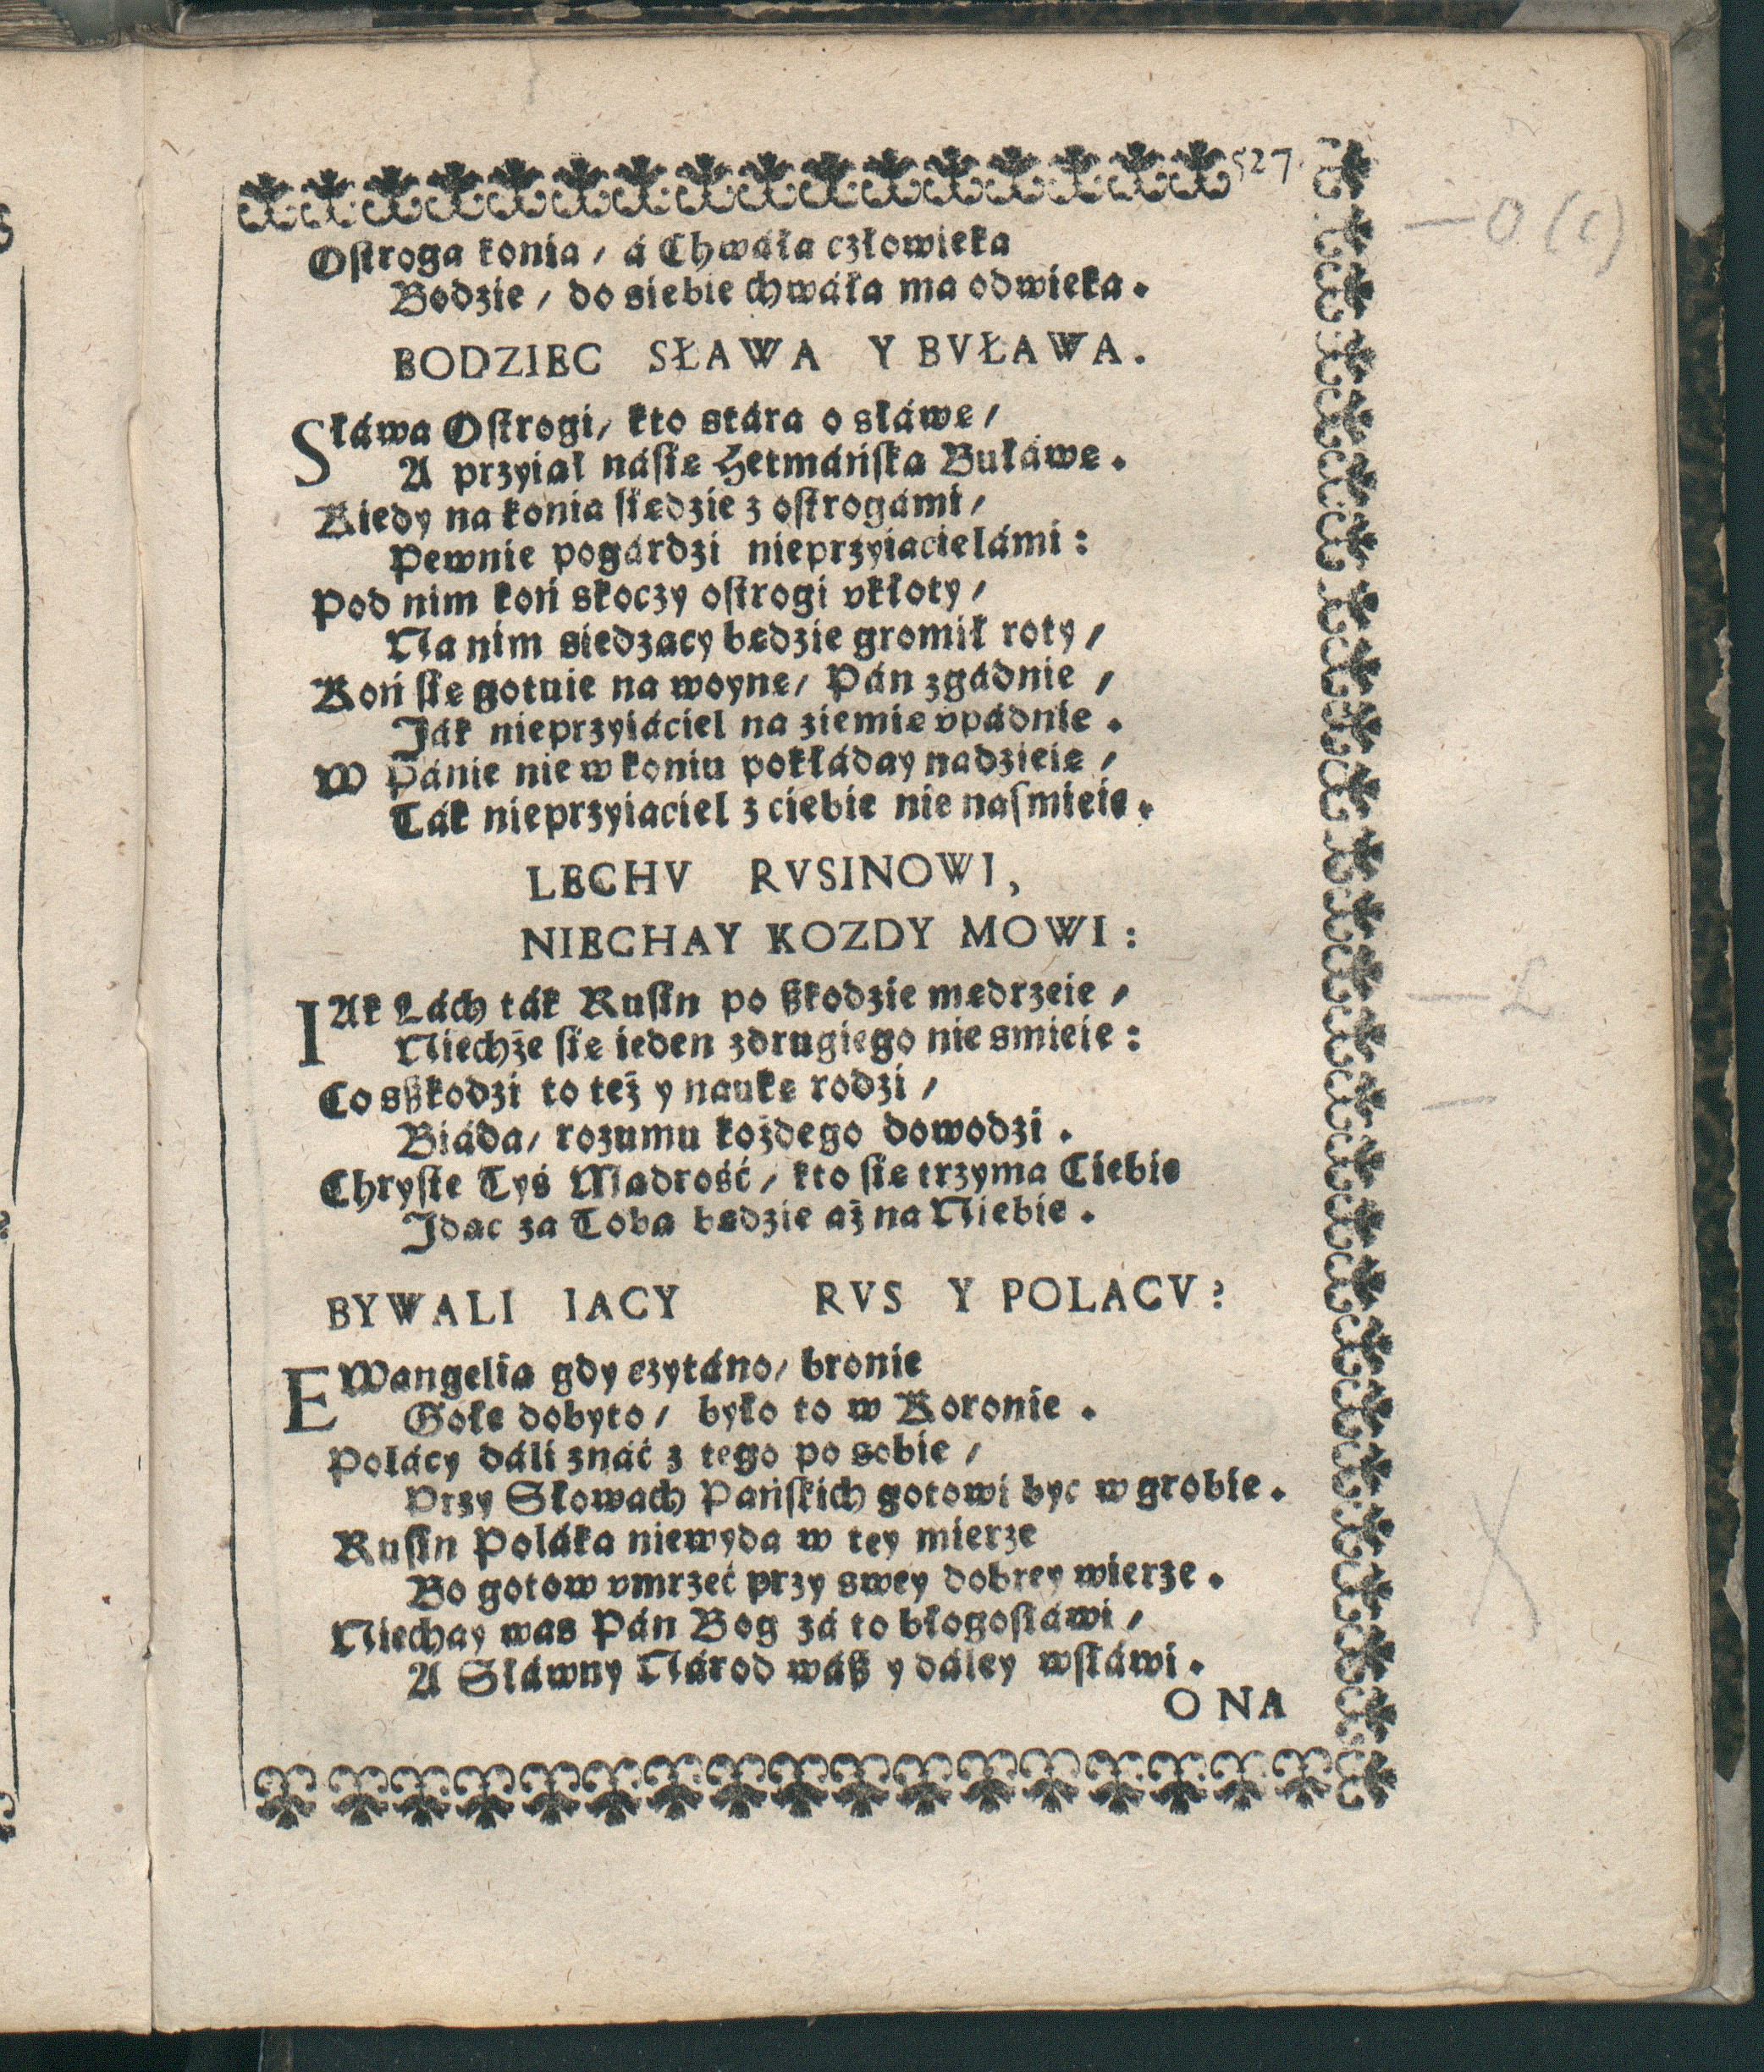 527.
Ostroga konia / á Chwáła człowieka
Bodzie / do siebie chwáła ma odwieka.
BODZIEC SŁAWA Y BVŁAWA.
Słáwa Ostrogi / kto stára o słáwę /
A przyiął náśię Hetmáńską Bułáwę.
Kiedy na konia śiędzie z ostrogámi /
Pewnie pogárdzi nieprzyiacielámi:
Pod nim koń skoczy ostrogi vkłoty /
Na nim siedzący będzie gromił roty /
Koń śię gotuie na woynę / Pán zgádnie /
Ják nieprzyiáciel na ziemię vpádnie.
W Pánie nie w koniu pokłáday nadzieię /
Ták nieprzyiaciel z ciebie nie nasmieie.
LECHV RVSINOWI,
NIECHAY KOZDY MOWI:
IAk Lách ták Rusin po ßkodzie mędrzeie /
Niechże śię ieden zdrugiego nie smieie:
Co sßkodzi to też y naukę rodzi /
Biádá / rozumu każdego dowodzi.
Chryste Tyś Mądrość / kto śię trzyma Ciebie
Idąc za Tobą będzie aż na Niebie.
BYWALI IACY RVS Y POLACV?
EWangelia gdy czytáno / bronie
Gołe dobyto / było to w Koronie.
Polácy dáli znáć z tego po sobie /
Przy Słowach Pańskich gotowi byc w grobie.
Rusin Poláka niewyda w tey mierze
Bo gotow vmrzeć przy swey dobrey wierze.
Niechay was Pán Bog zá to błogosłáwi /
A Słáwny Národ wáß y dáley wsłáwi.
ONA
— O (c)
— L